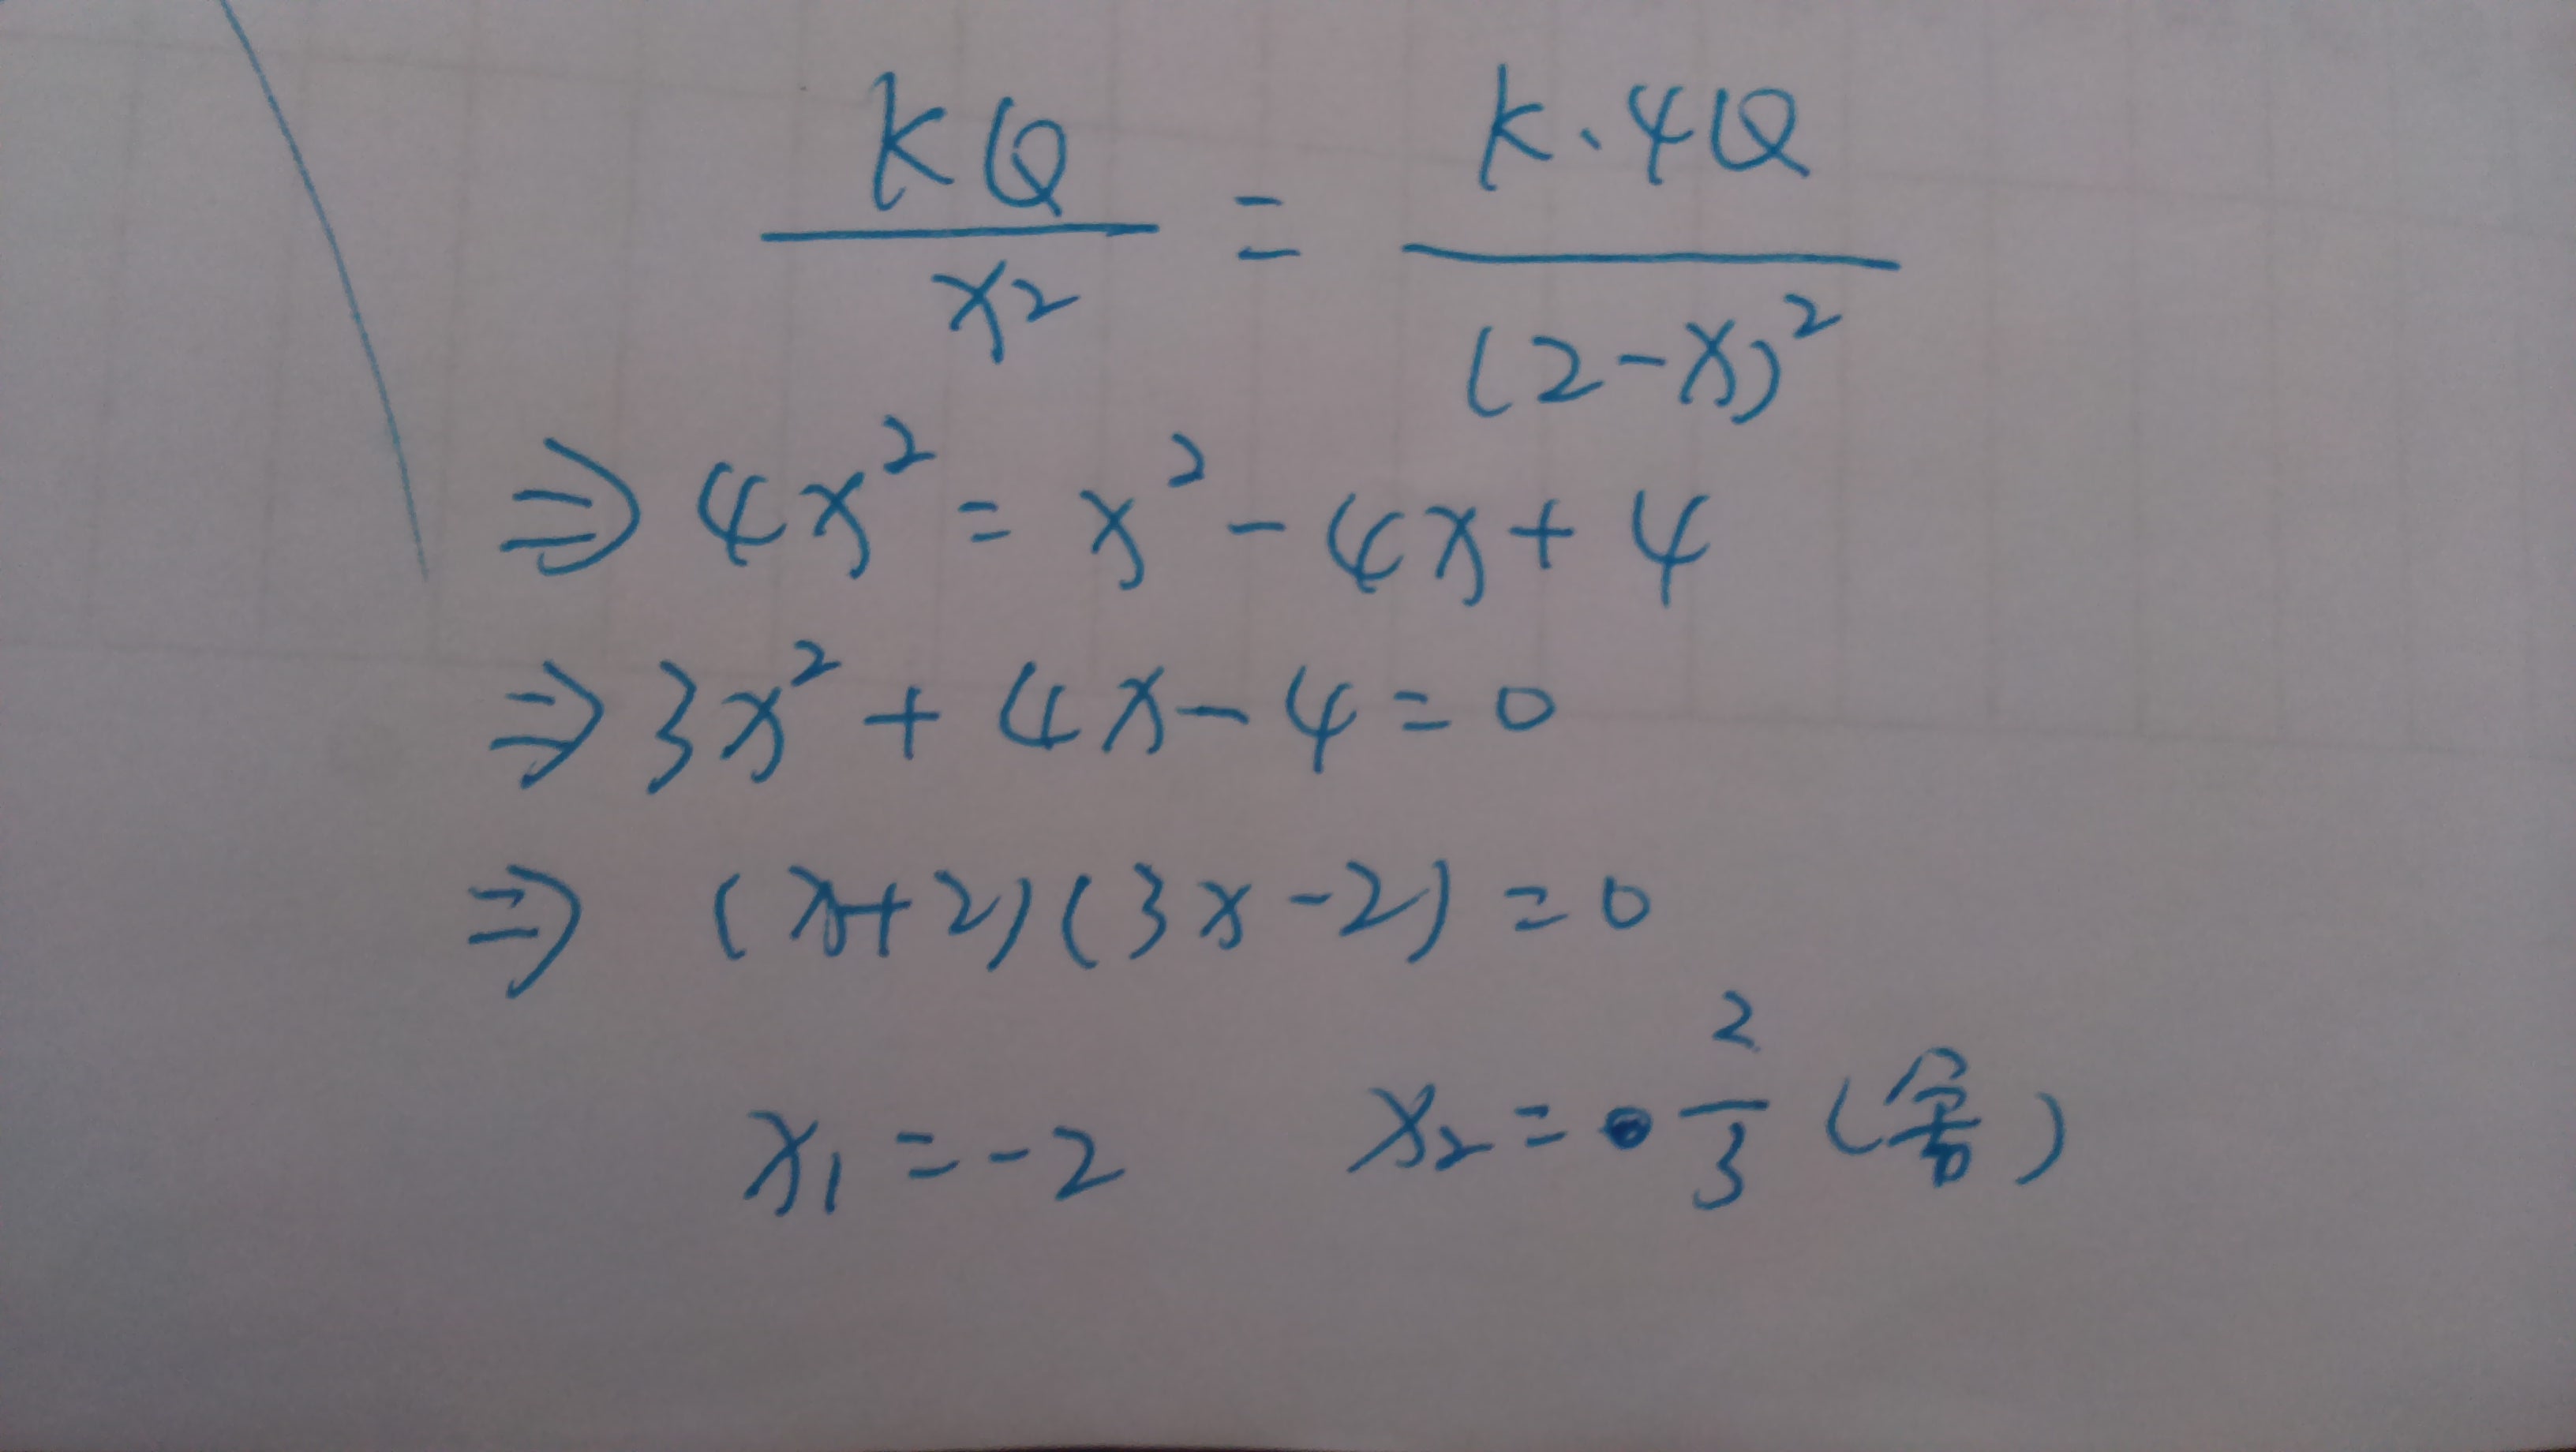 KQ/x² = K·4Q/(2-x)²
⇒ 4x² = x² - 4x + 4
⇒ 3x² + 4x - 4 = 0
⇒ (x+2)(3x-2) = 0
x₁ = -2 x₂ = 2/3 (舍)